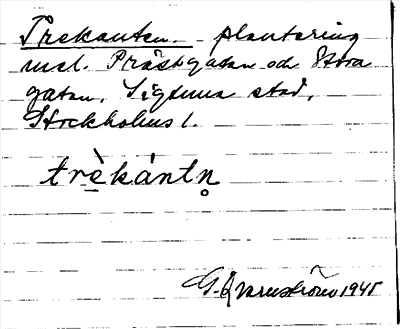 Trekanten. plantering
mel. Prästgatan och Stora
gatan, Sigtuna stad,
Stockholms l.
trè̱kántn̥
G. Qvarnström 1945